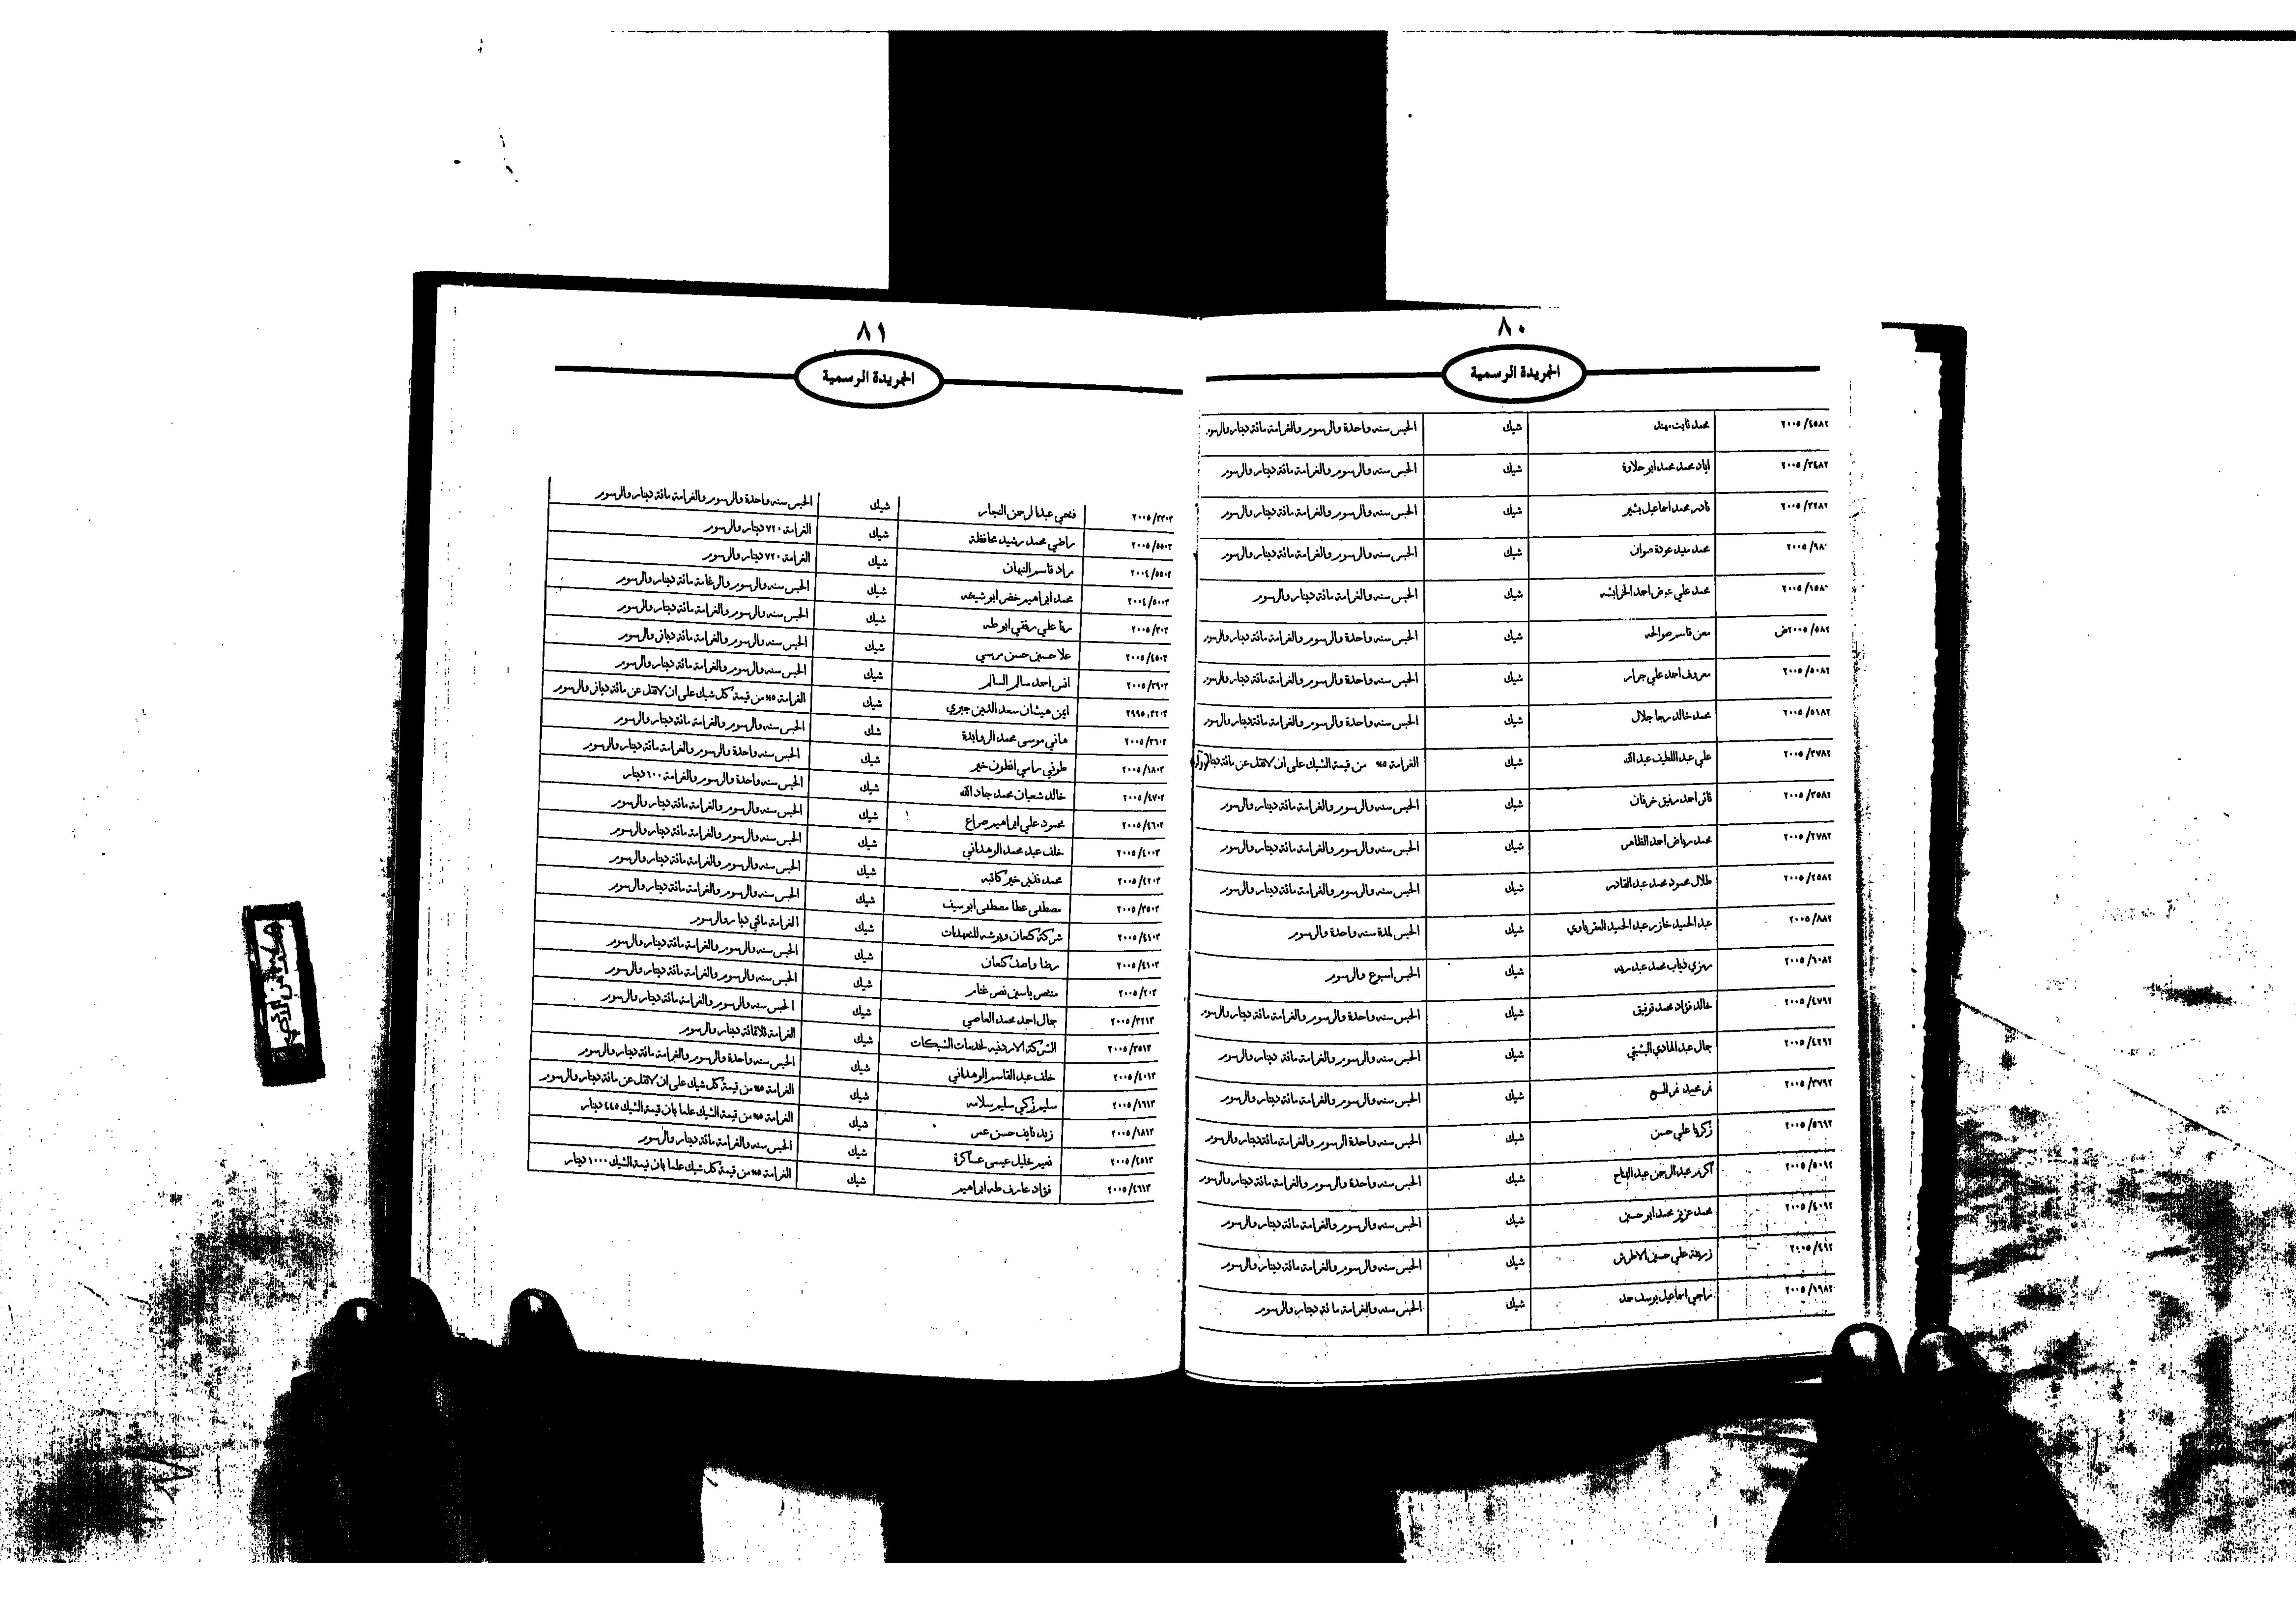 ٨٠
الجريدة الرسمية
٢٠٠٥/٤٥٨٢ محمد ثابت مهند شيك الحبس سنه واحدة والرسوم والغرامة مائة دينار والرسوم
٢٠٠٥/٣٤٨٢ اياد محمد محمد ابو حلاوة شيك الحبس سنه والرسوم والغرامة مائة دينار والرسوم
٢٠٠٥/٣٢٨٢ نادر محمد اسماعيل بشير شيك الحبس سنه والرسوم والغرامة مائة دينار والرسوم
٢٠٠٥/٩٨٠ محمد سعيد عودة صوان شيك الحبس سنه والرسوم والغرامة مائة دينار والرسوم
٢٠٠٥/١٥٨٠ محمد علي عوض احمد الخرابشه شيك الحبس سنه والغرامة مائة دينار والرسوم
٢٠٠٥/٥٨٢ض معن قاسم صوالحه شيك الحبس سنه واحدة والرسوم والغرامة مائة دينار والرسوم
٢٠٠٥/٥٠٨٢ معروف احمد علي جرار شيك الحبس سنه واحدة والرسوم والغرامة مائة دينار والرسوم
٢٠٠٥/٥١٨٢ محمد خالد رجا جلال شيك الحبس سنه واحدة والرسوم والغرامة مائة دينار والرسوم
٢٠٠٥/٣٧٨٢ علي عبد اللطيف عبد الله شيك الغرامة ٥% من قيمة الشيك على ان لا تقل عن مائة دينار
٢٠٠٥/٣٥٨٢ احمد رفيق خرفان شيك الحبس سنه والرسوم والغرامة مائة دينار والرسوم
٢٠٠٥/٢٧٨٢ محمد رياض احمد الظاهر شيك الحبس سنه والرسوم والغرامة مائة دينار والرسوم
٢٠٠٥/٢٥٨٢ طلال محمود محمد عبد القادر شيك الحبس سنه والرسوم والغرامة مائة دينار والرسوم
٢٠٠٥/٨٨٢ عبد الحميد خازر عبد الحميد العقرباوي شيك الحبس لمدة سنه واحدة والرسوم
٢٠٠٥/٦٠٨٢ رمزي ذياب محمد عبد ربه شيك الحبس اسبوع والرسوم
٢٠٠٥/٤٧٩٢ خالد فؤاد محمد توفيق شيك الحبس سنه واحدة والرسوم والغرامة مائة دينار والرسوم
٢٠٠٥/٤٢٩٢ جمال عبد الهادي البشيتي شيك الحبس سنه والرسوم والغرامة مائة دينار والرسوم
٢٠٠٥/٣٧٩٢ نمر محمد نمر السبع شيك الحبس سنه والرسوم والغرامة مائة دينار والرسوم
٢٠٠٥/٥٦٩٢ زكريا علي حسن شيك الحبس سنه واحدة الرسوم والغرامة مائة دينار والرسوم
٢٠٠٥/٥٠٩٢ اكرم عبد الرحمن عبد الفتاح شيك الحبس سنه واحدة والرسوم والغرامة مائة دينار والرسوم
٢٠٠٥/٤٠٩٢ محمد عزيز محمد ابو حسين شيك الحبس سنه والرسوم والغرامة مائة دينار والرسوم
٢٠٠٥/٤٩٢ زريفة علي حسين الاطرش شيك الحبس سنه والرسوم والغرامة مائة دينار والرسوم
٢٠٠٥/١٩٨٢ راجي اسماعيل يوسف حمد شيك الحبس سنه والغرامة مائة دينار والرسوم
٨١
الجريدة الرسمية
٢٠٠٥/٢٢٠٣ فتحي عبدالرحمن النجار شيك الحبس سنه واحدة والرسوم والغرامة مائة دينار والرسوم
٢٠٠٥/٥٥٠٣ راضي محمد رشيد محافظة شيك الغرامة ٧٢٠ دينار والرسوم
٢٠٠٤/٥٥٠٣ مراد قاسم النبهان شيك الغرامة ٧٢٠ دينار والرسوم
٢٠٠٤/٥٠٠٣ محمد ابراهيم خضر ابو شيخه شيك الحبس سنه والرسوم والرغامة مائة دينار والرسوم
٢٠٠٥/٣٠٣ رنا علي رفقي ابو طه شيك الحبس سنه والرسوم والغرامة مائة دينار والرسوم
٢٠٠٥/٤٥٠٣ علا حسين حسن مرسي شيك الحبس سنه والرسوم والغرامة مائة والرسوم
٢٠٠٥/٣٩٠٣ انس احمد سالم السالم شيك الحبس سنه والرسوم والغرامة مائة دينار والرسوم
ايمن ميشان سعد الدين جبري شيك الغرامة ٥% من قيمة كل شيك على ان لا تقل عن مائة والرسوم
٢٠٠٥/٣٦٠٣ هاني موسى محمد الروابدة شك الحبس سنه والرسوم والغرامة مائة دينار والرسوم
٢٠٠٥/١٨٠٣ طوني رامي انطون خير شيك الحبس سنه واحدة والرسوم والغرامة مائة دينار والرسوم
٢٠٠٥/٤٧٠٣ خالد شعبان محمد جاد الله شيك الحبس سنه واحدة والرسوم والغرامة ١٠٠ دينار
٢٠٠٥/٤٦٠٣ محمود علي ابراهيم صراع شيك الحبس سنه والرسوم والغرامة مائة دينار والرسوم
٢٠٠٥/٤٠٠٣ خلف عبد محمد الوهداني شيك الحبس سنه والرسوم والغرامة مائة دينار والرسوم
٢٠٠٥/٤٢٠٣ محمد خير كاتبه شيك الحبس سنه والرسوم والغرامة مائة دينار والرسوم
٢٠٠٥/٣٥٠٣ مصطفى عطا مصطفى ابو سيف شيك الحبس سنه والرسوم والغرامة مائة دينار والرسوم
٢٠٠٥/٤١٠٣ شركة كنعان للتعهدات شيك الغرامة مائتي دينار والرسوم
٢٠٠٥/٤١٠٣ رضا واصف كنعان شيك الحبس سنه والرسوم والغرامة مائة دينار والرسوم
٢٠٠٥/٢٠٣ منتصر ياسين نصر غنام شيك الحبس سنه والرسوم والغرامة مائة دينار والرسوم
٢٠٠٥/٣٢١٣ جمال احمد محمد العاصي شيك الحبس سنه والرسوم والغرامة مائة دينار والرسوم
٢٠٠٥/٣٥١٣ الشركة الاردنيه لخدمات الشبكات شيك الغرامة ثلاثمائة دينار والرسوم
٢٠٠٥/٤٠١٣ خلف عبد القاسم الوهداني شيك الحبس سنه واحدة والرسوم والغرامة مائة دينار والرسوم
٢٠٠٥/١٦١٣ سليم زكي سليم سلامه شيك الغرامة ٥% من قيمة كل شيك على ان لا تقل عن مائة دينار والرسوم
٢٠٠٥/١٨١٣ زيد نايف حسن عمر شيك الغرامة ٥% من قيمة الشيك علما بان قيمة الشيك ٤٤٥ دينار
٢٠٠٥/٤٥١٣ نعيم خليل عيسى عساكرة شيك الحبس سنه والغرامة مائة دينار والرسوم
٢٠٠٥/٤٦١٣ فؤاد عارف طه ابراهيم شيك الغرامة ٥% من قيمة كل شيك علما بان قيمة الشيك ١٠٠٠ دينار